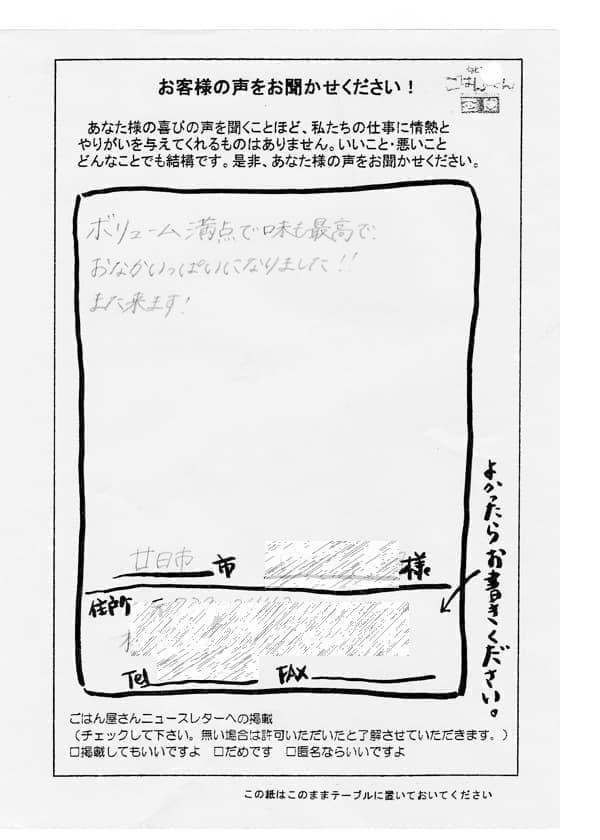 お客様の声をお聞かせください！
ごはんくん
あなた様の喜びの声を聞くことほど、私たちの仕事に情熱と
やりがいを与えてくれるものはありません。いいこと・悪いこと
どんなことでも結構です。是非、あなた様の声をお聞かせください。
ボリューム満点で味も最高で
おなかいっぱいになりました！！
また来ます！
よかったらお書きください。
廿日市 市 様
住所 〒
Tel FAX
ごはん屋さんニュースレターへの掲載
（チェックして下さい。無い場合は許可いただいたと了解させていただきます。）
□掲載してもいいですよ □だめです □匿名ならいいですよ
この紙はこのままテーブルに置いておいてください